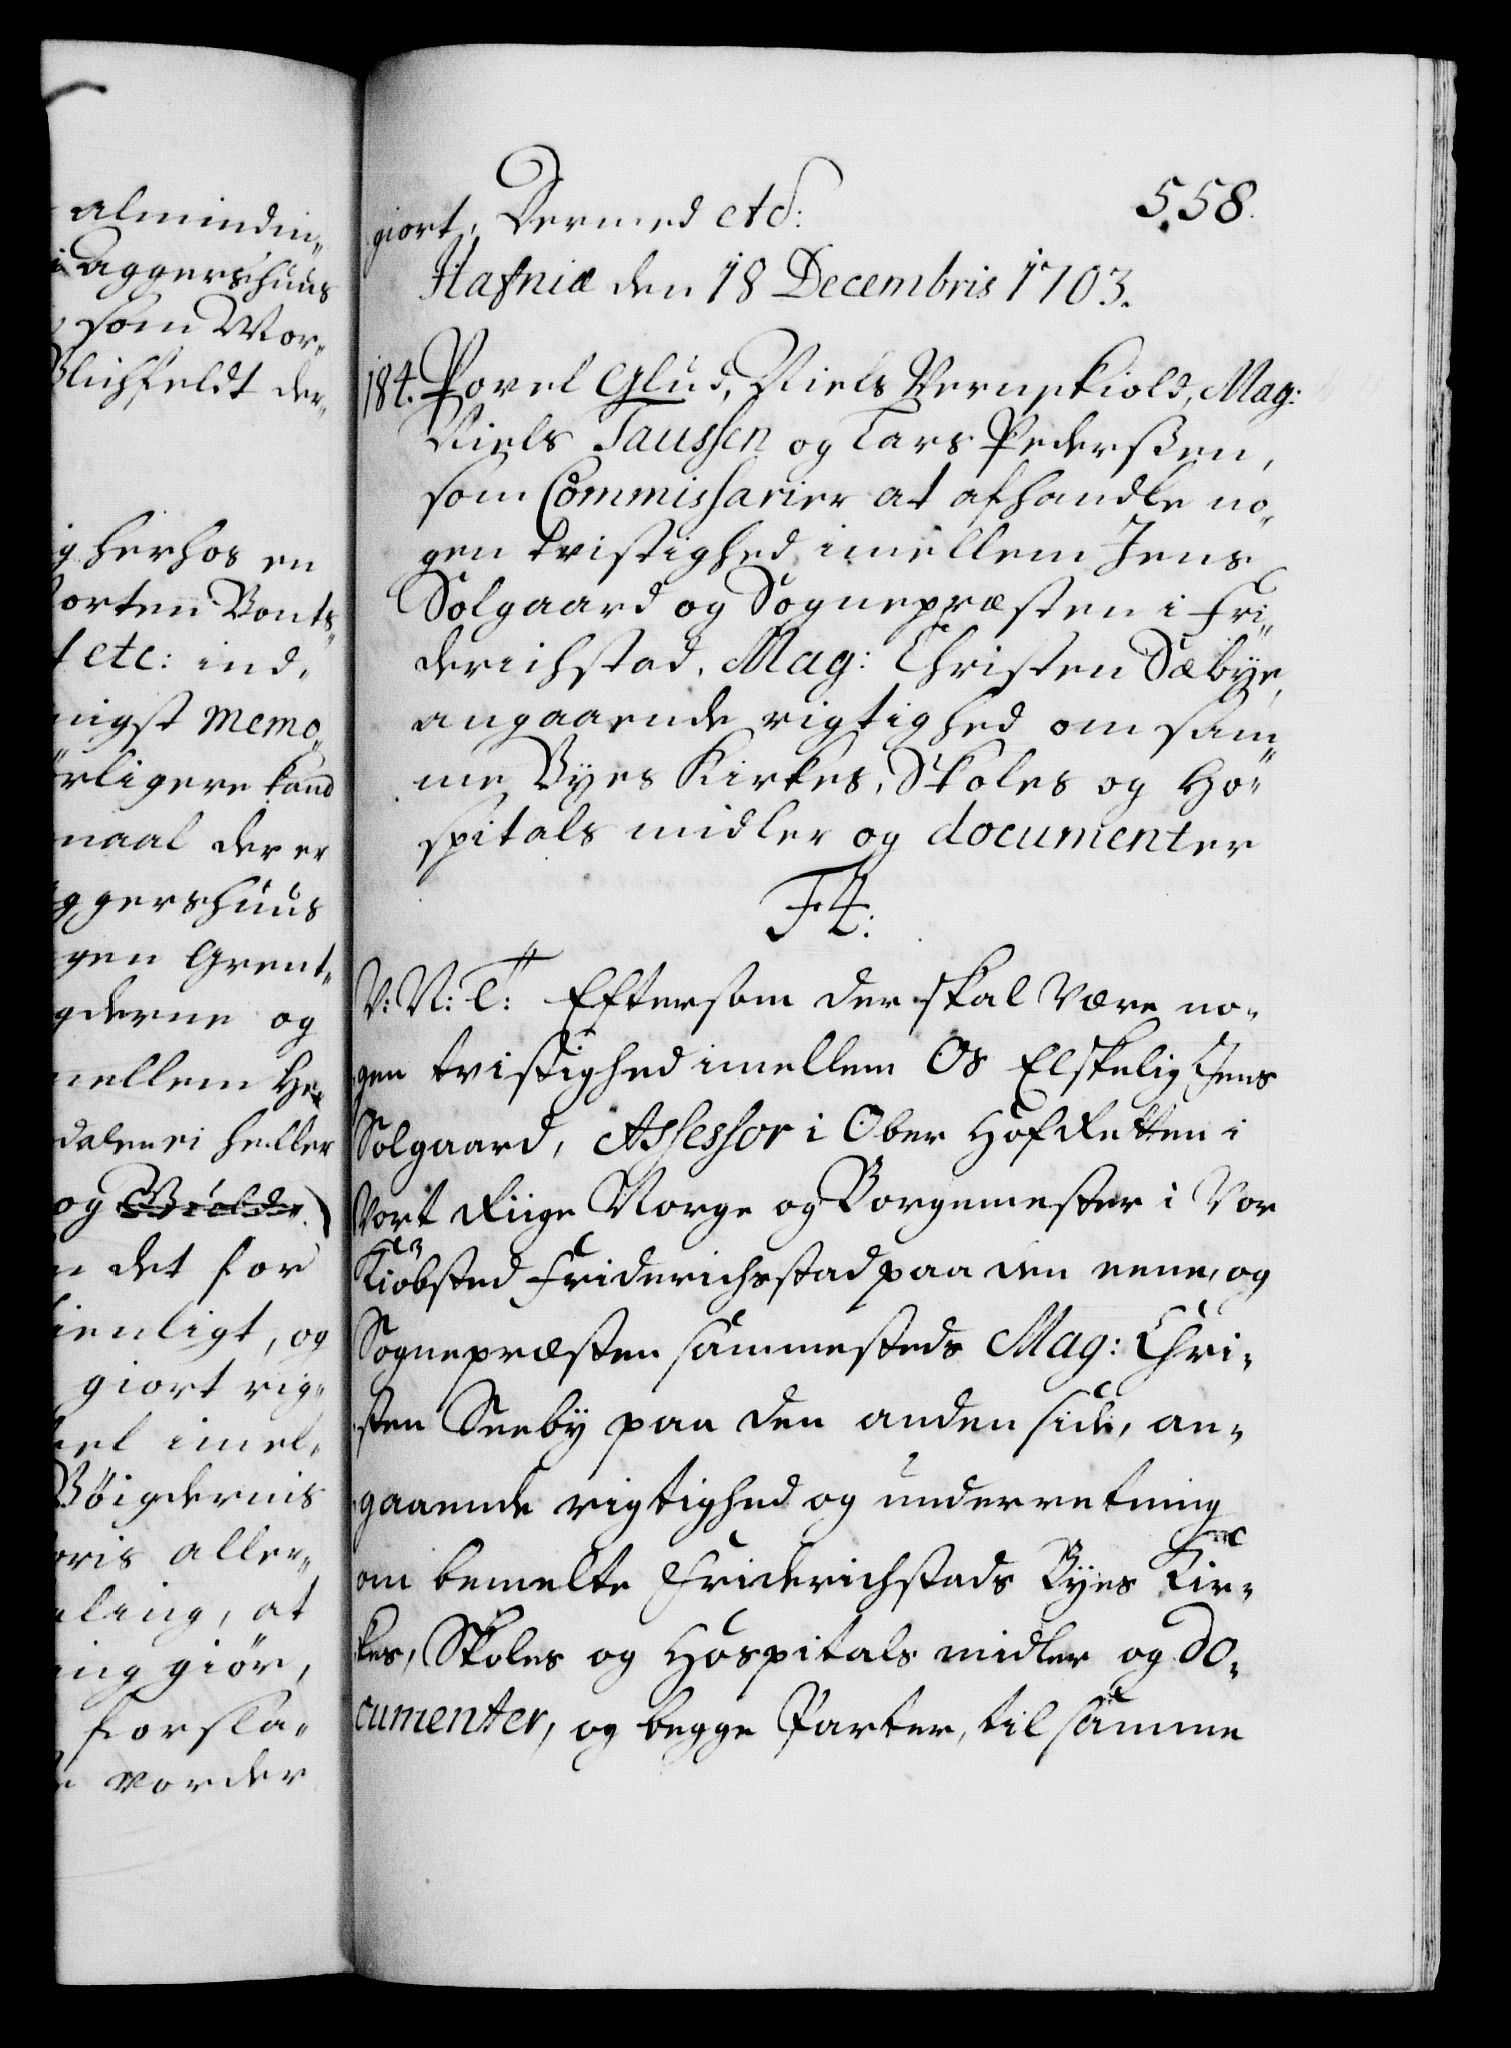 almindin„
i Aggershuus
som Vor„
Blichfeldt der„
ig herhos en
Morten Bonts„
etc: ind„
nigst Memo„
rligere kand
naal der er
ggershuus
gen Grent„
gderne og
mellem He„
dalen ei heller
og
det for
ienligt, og
giort rig„
el imel„
Böigdernis
oris aller„
ling, at
ing giör,
forsla„
vorder
558.
giort, Dermed etc:
Hafniæ den 18 Decembris 1703.
184. Povel Glud, Niels Vernskiold, Mag:
Niels Taussen og Lars Pederßen,
som Commissarier at afhandle no„
gen tvistighed imellem Jens
Solgaard og Sognepræsten i Fri„
derichstad, Mag: Christen Sæbye,
angaaende rigtighed om sam„
me Byes Kirkes, Skoles og Ho„
spitals midler og documenter
F4:
V: N: T: Eftersom der skal være no„
gen tvistighed imellem Os Elskelig Jens
Solgaard, Assessor i Ober Hof Retten i
Vort Riige Norge og Borgemester i Vor
Kiöbsted Friderichsstad paa den eene, og
Sognepræsten sammesteds Mag: Chri„
sten Seeby paa den anden side, an„
gaaende rigtighed og underretning
om bemelte Friderichstads Byes Kir„
kes, Skoles og Hospitals midler og do„
cumenter, og begge Parter, til samme